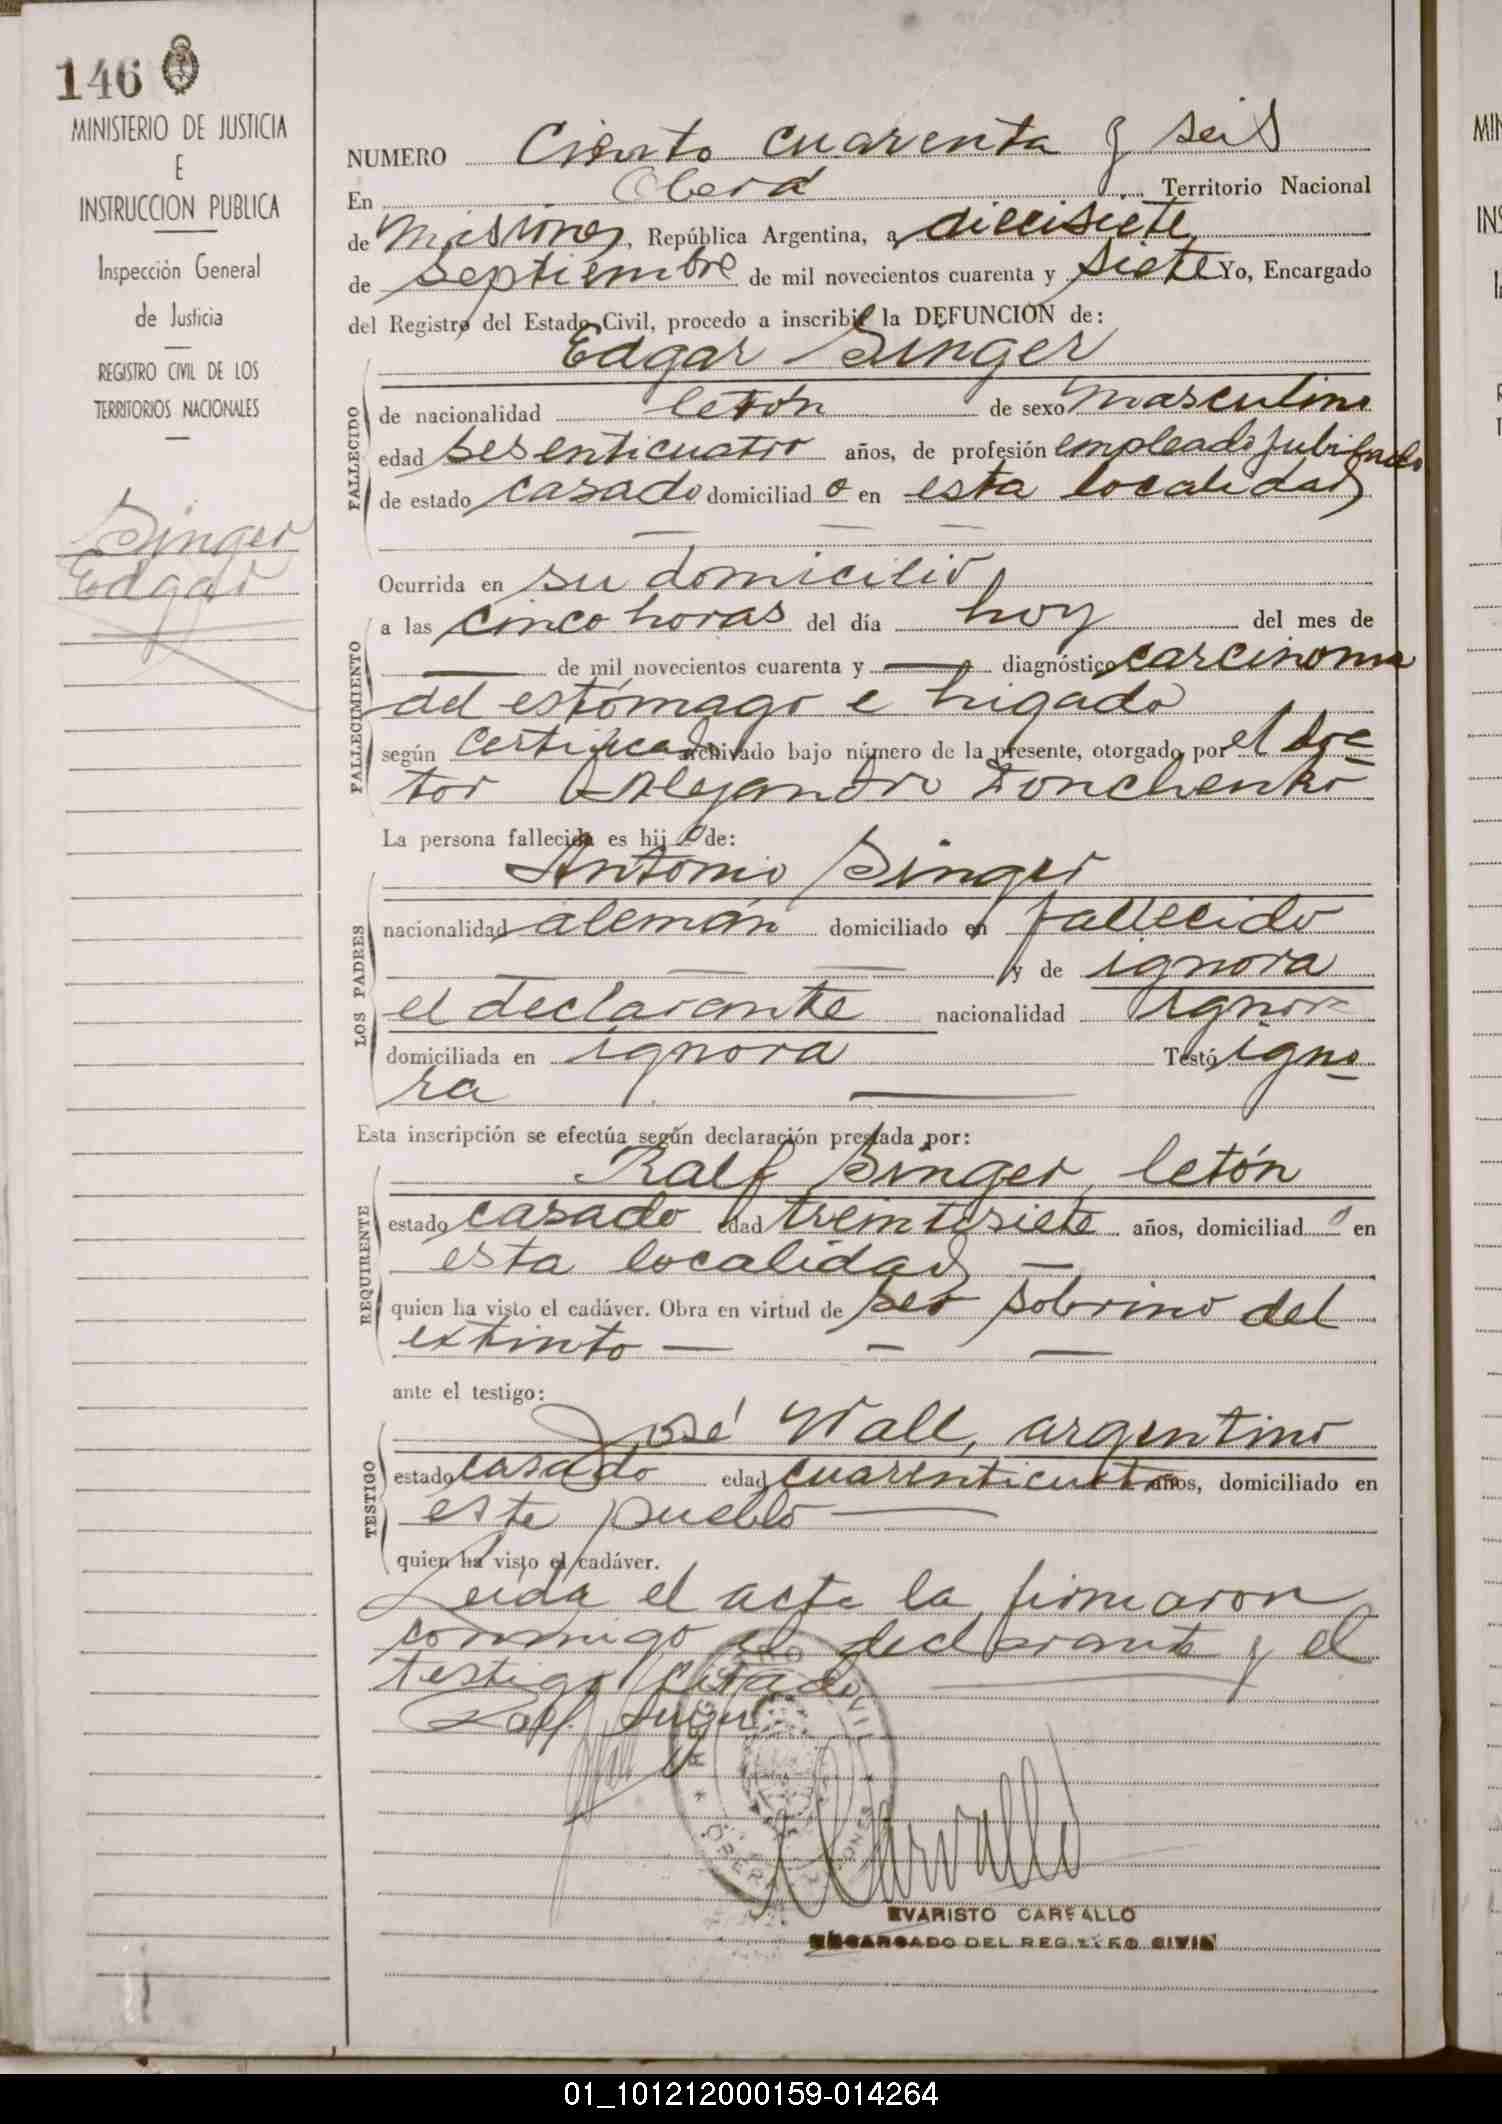 146
MINISTERIO DE JUSTICIA
E
INSTRUCCION PUBLICA
Inspección General
de Justicia
REGISTRO CIVIL DE LOS
TERRITORIOS NACIONALES
Singer
Edgar
NUMERO Ciento cuarenta y seis
En Oberá Territorio Nacional
de Misiones, República Argentina, a diecisiete
de septiembre de mil novecientos cuarenta y siete Yo, Encargado
del Registro del Estado Civil, procedo a inscribir la DEFUNCION de:
Edgar Singer
FALLECIDO
de nacionalidad letón de sexo masculino
edad sesenticuatro años, de profesión empleado jubilado
de estado casado domiciliado en esta localidad
Ocurrida en su domicilio
a las cinco horas del día hoy del mes de
FALLECIMIENTO
de mil novecientos cuarenta y diagnóstico carcinoma
del estómago e higado
según certificado archivado bajo número de la presente, otorgado por el doc
tor Alejandro Zonchenko
La persona fallecida es hijo de:
Antonio Singer
LOS PADRES
nacionalidad alemán domiciliado en fallecido
y de ignora
el declarante nacionalidad ignora
domiciliada en ignora Testó igno
ra
Esta inscripción se efectúa según declaración prestada por:
Ralf Singer, letón
REQUIRENTE
estado casado edad treintisiete años, domiciliado en
esta localidad
quien ha visto el cadáver. Obra en virtud de ser sobrino del
extinto
ante el testigo:
José Wall, argentino
TESTIGO
estado casado edad cuarenticuatro años, domiciliado en
este pueblo
quien ha visto el cadáver.
Leída el acta la firmaron
conmigo el declarante y el
testigo citado
Ralf Singer
REGISTRO CIVIL
OBERA MISIONES
Carvallo
EVARISTO CARVALLO
ENCARGADO DEL REGISTRO CIVIL
01_101212000159-014264